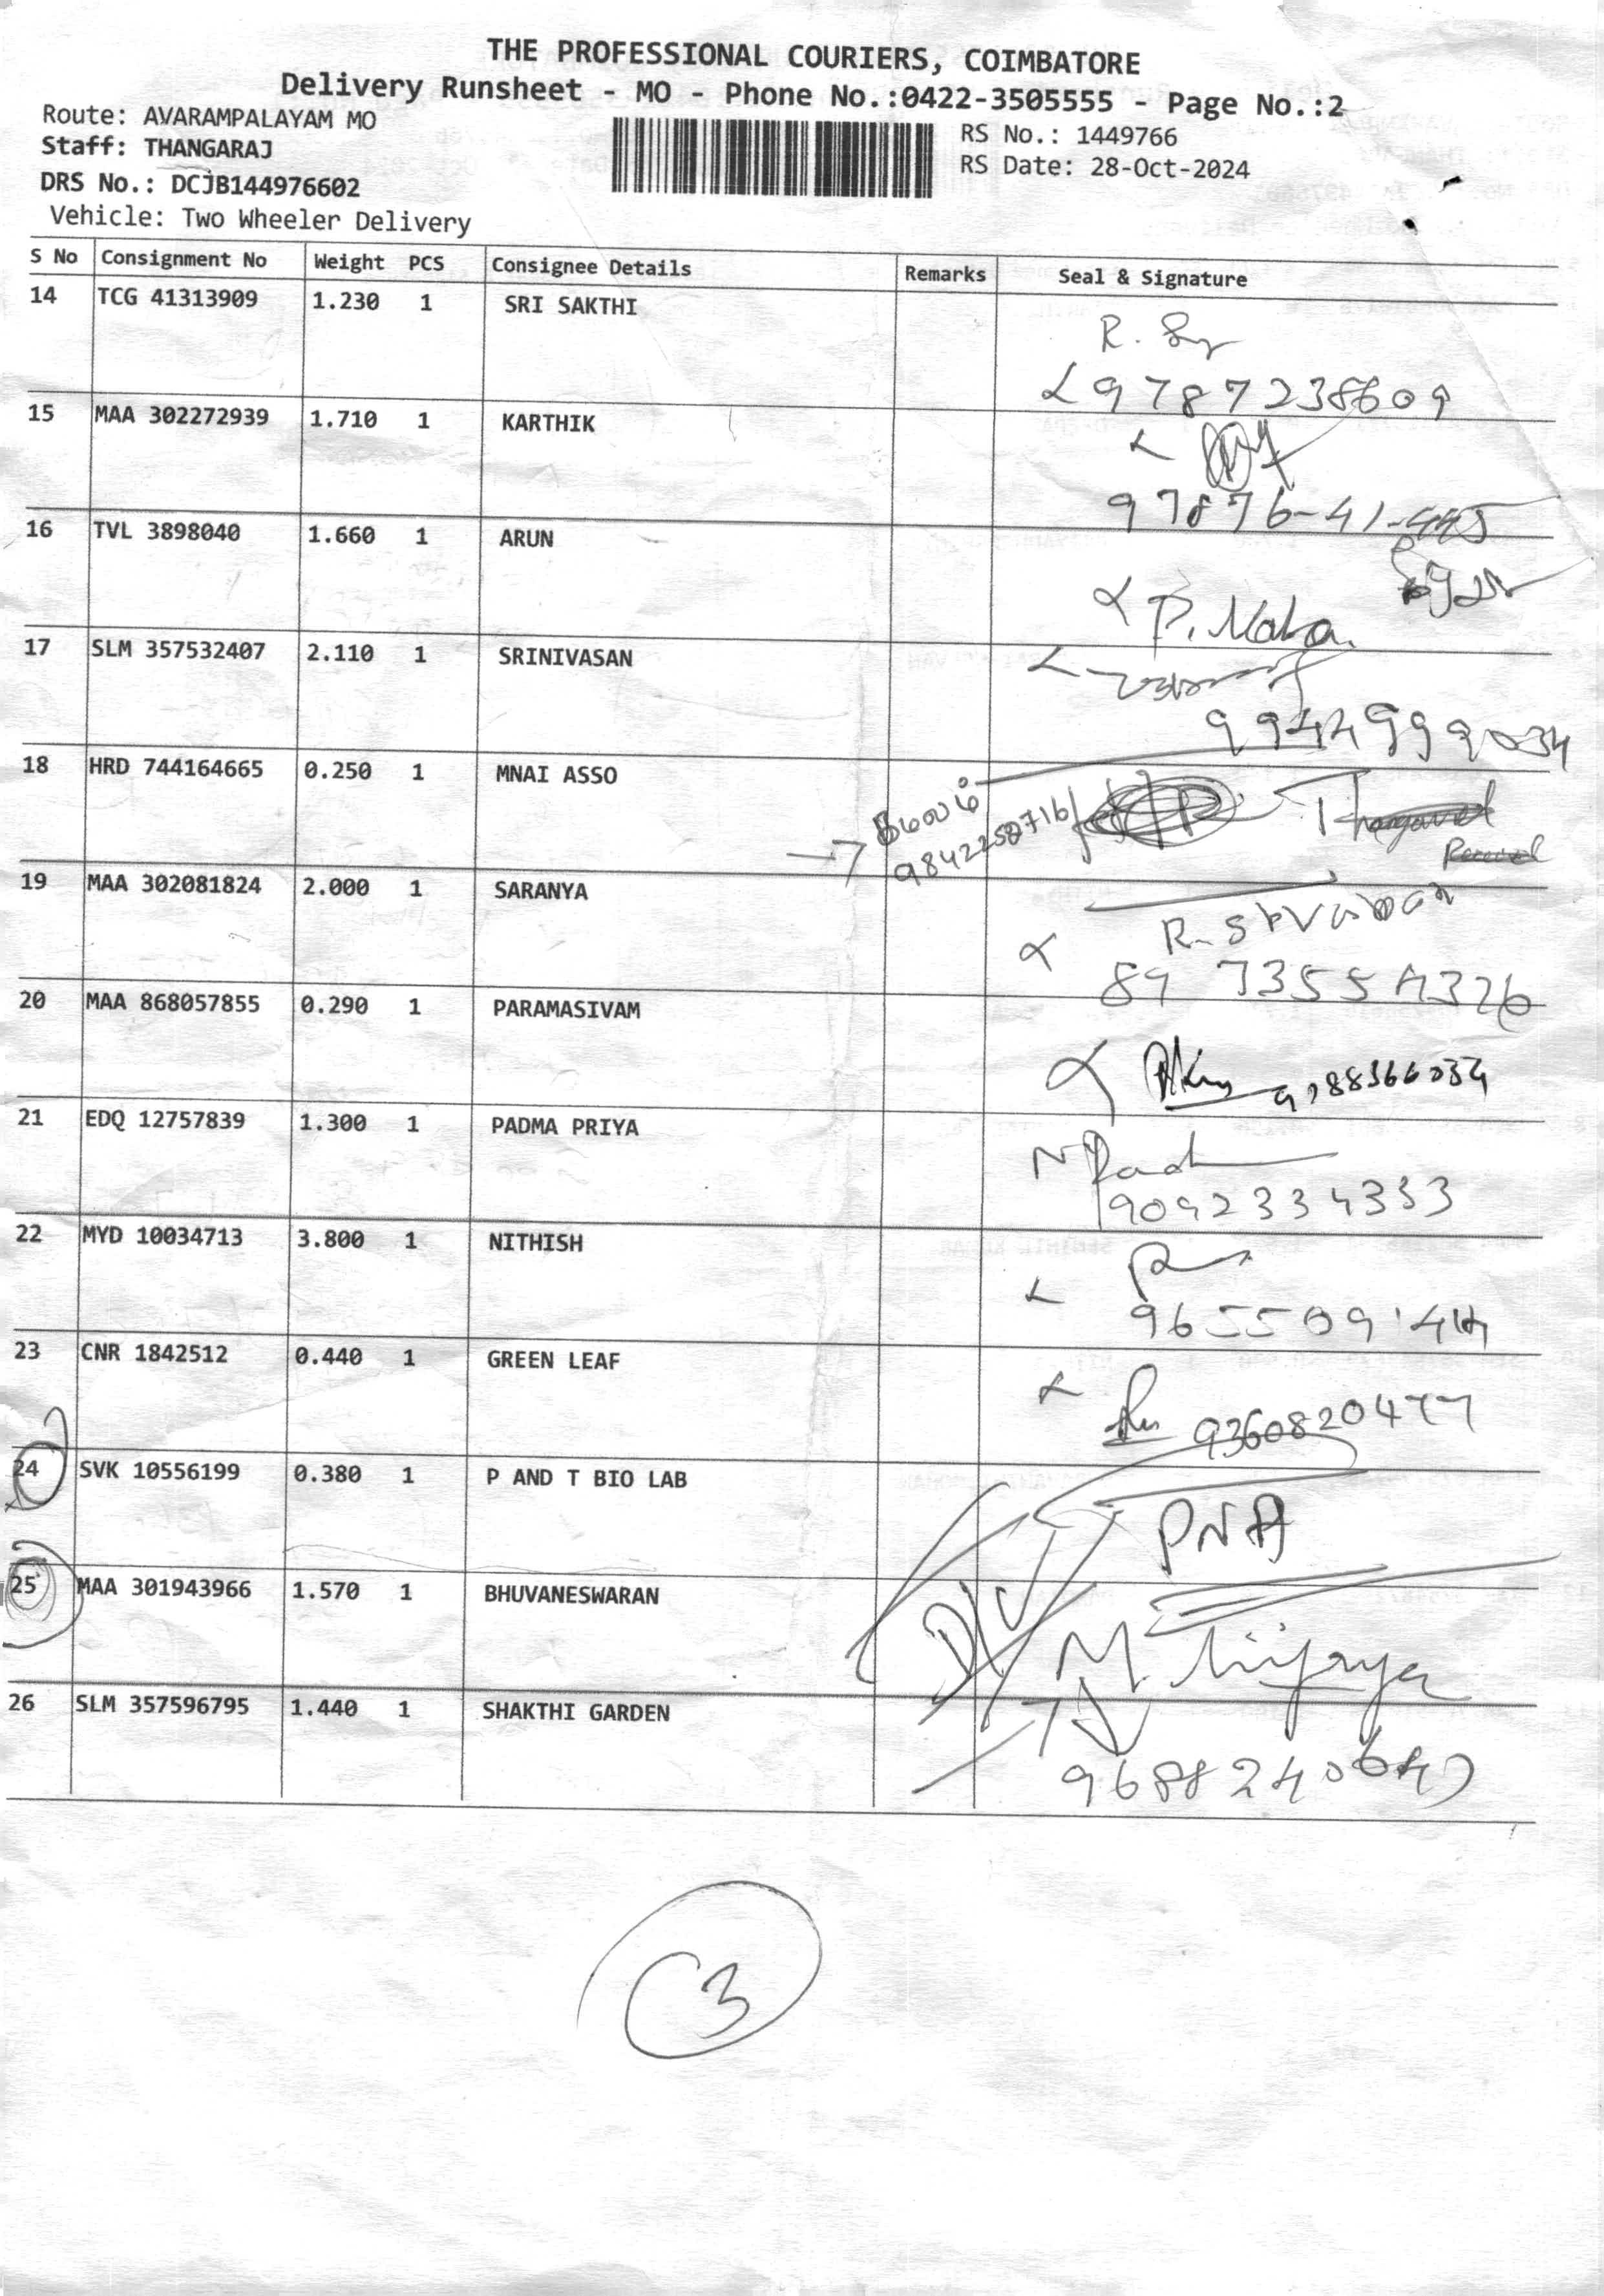 THE PROFESSIONAL COURIERS, COIMBATORE
Delivery Runsheet - MO - Phone No.:0422-3505555 - Page No.:2
Route: AVARAMPALAYAM MO
Staff: THANGARAJ
DRS No.: DCJB144976602
Vehicle: Two Wheeler Delivery
RS No.: 1449766
RS Date: 28-Oct-2024
S No Consignment No Weight PCS Consignee Details Remarks Seal & Signature
14 TCG 41313909 1.230 1 SRI SAKTHI
9787238609
15 MAA 302272939 1.710 1 KARTHIK
97876-41-445
16 TVL 3898040 1.660 1 ARUN
P. Maha
17 SLM 357532407 2.110 1 SRINIVASAN
9944999034
18 HRD 744164665 0.250 1 MNAI ASSO
9842258716
19 MAA 302081824 2.000 1 SARANYA
20 MAA 868057855 0.290 1 PARAMASIVAM
21 EDQ 12757839 1.300 1 PADMA PRIYA
9092334333
22 MYD 10034713 3.800 1 NITHISH
23 CNR 1842512 0.440 1 GREEN LEAF
9360820477
24 SVK 10556199 0.380 1 P AND T BIO LAB
PNA
25 MAA 301943966 1.570 1 BHUVANESWARAN
D/L
M. Vijaya
26 SLM 357596795 1.440 1 SHAKTHI GARDEN
3